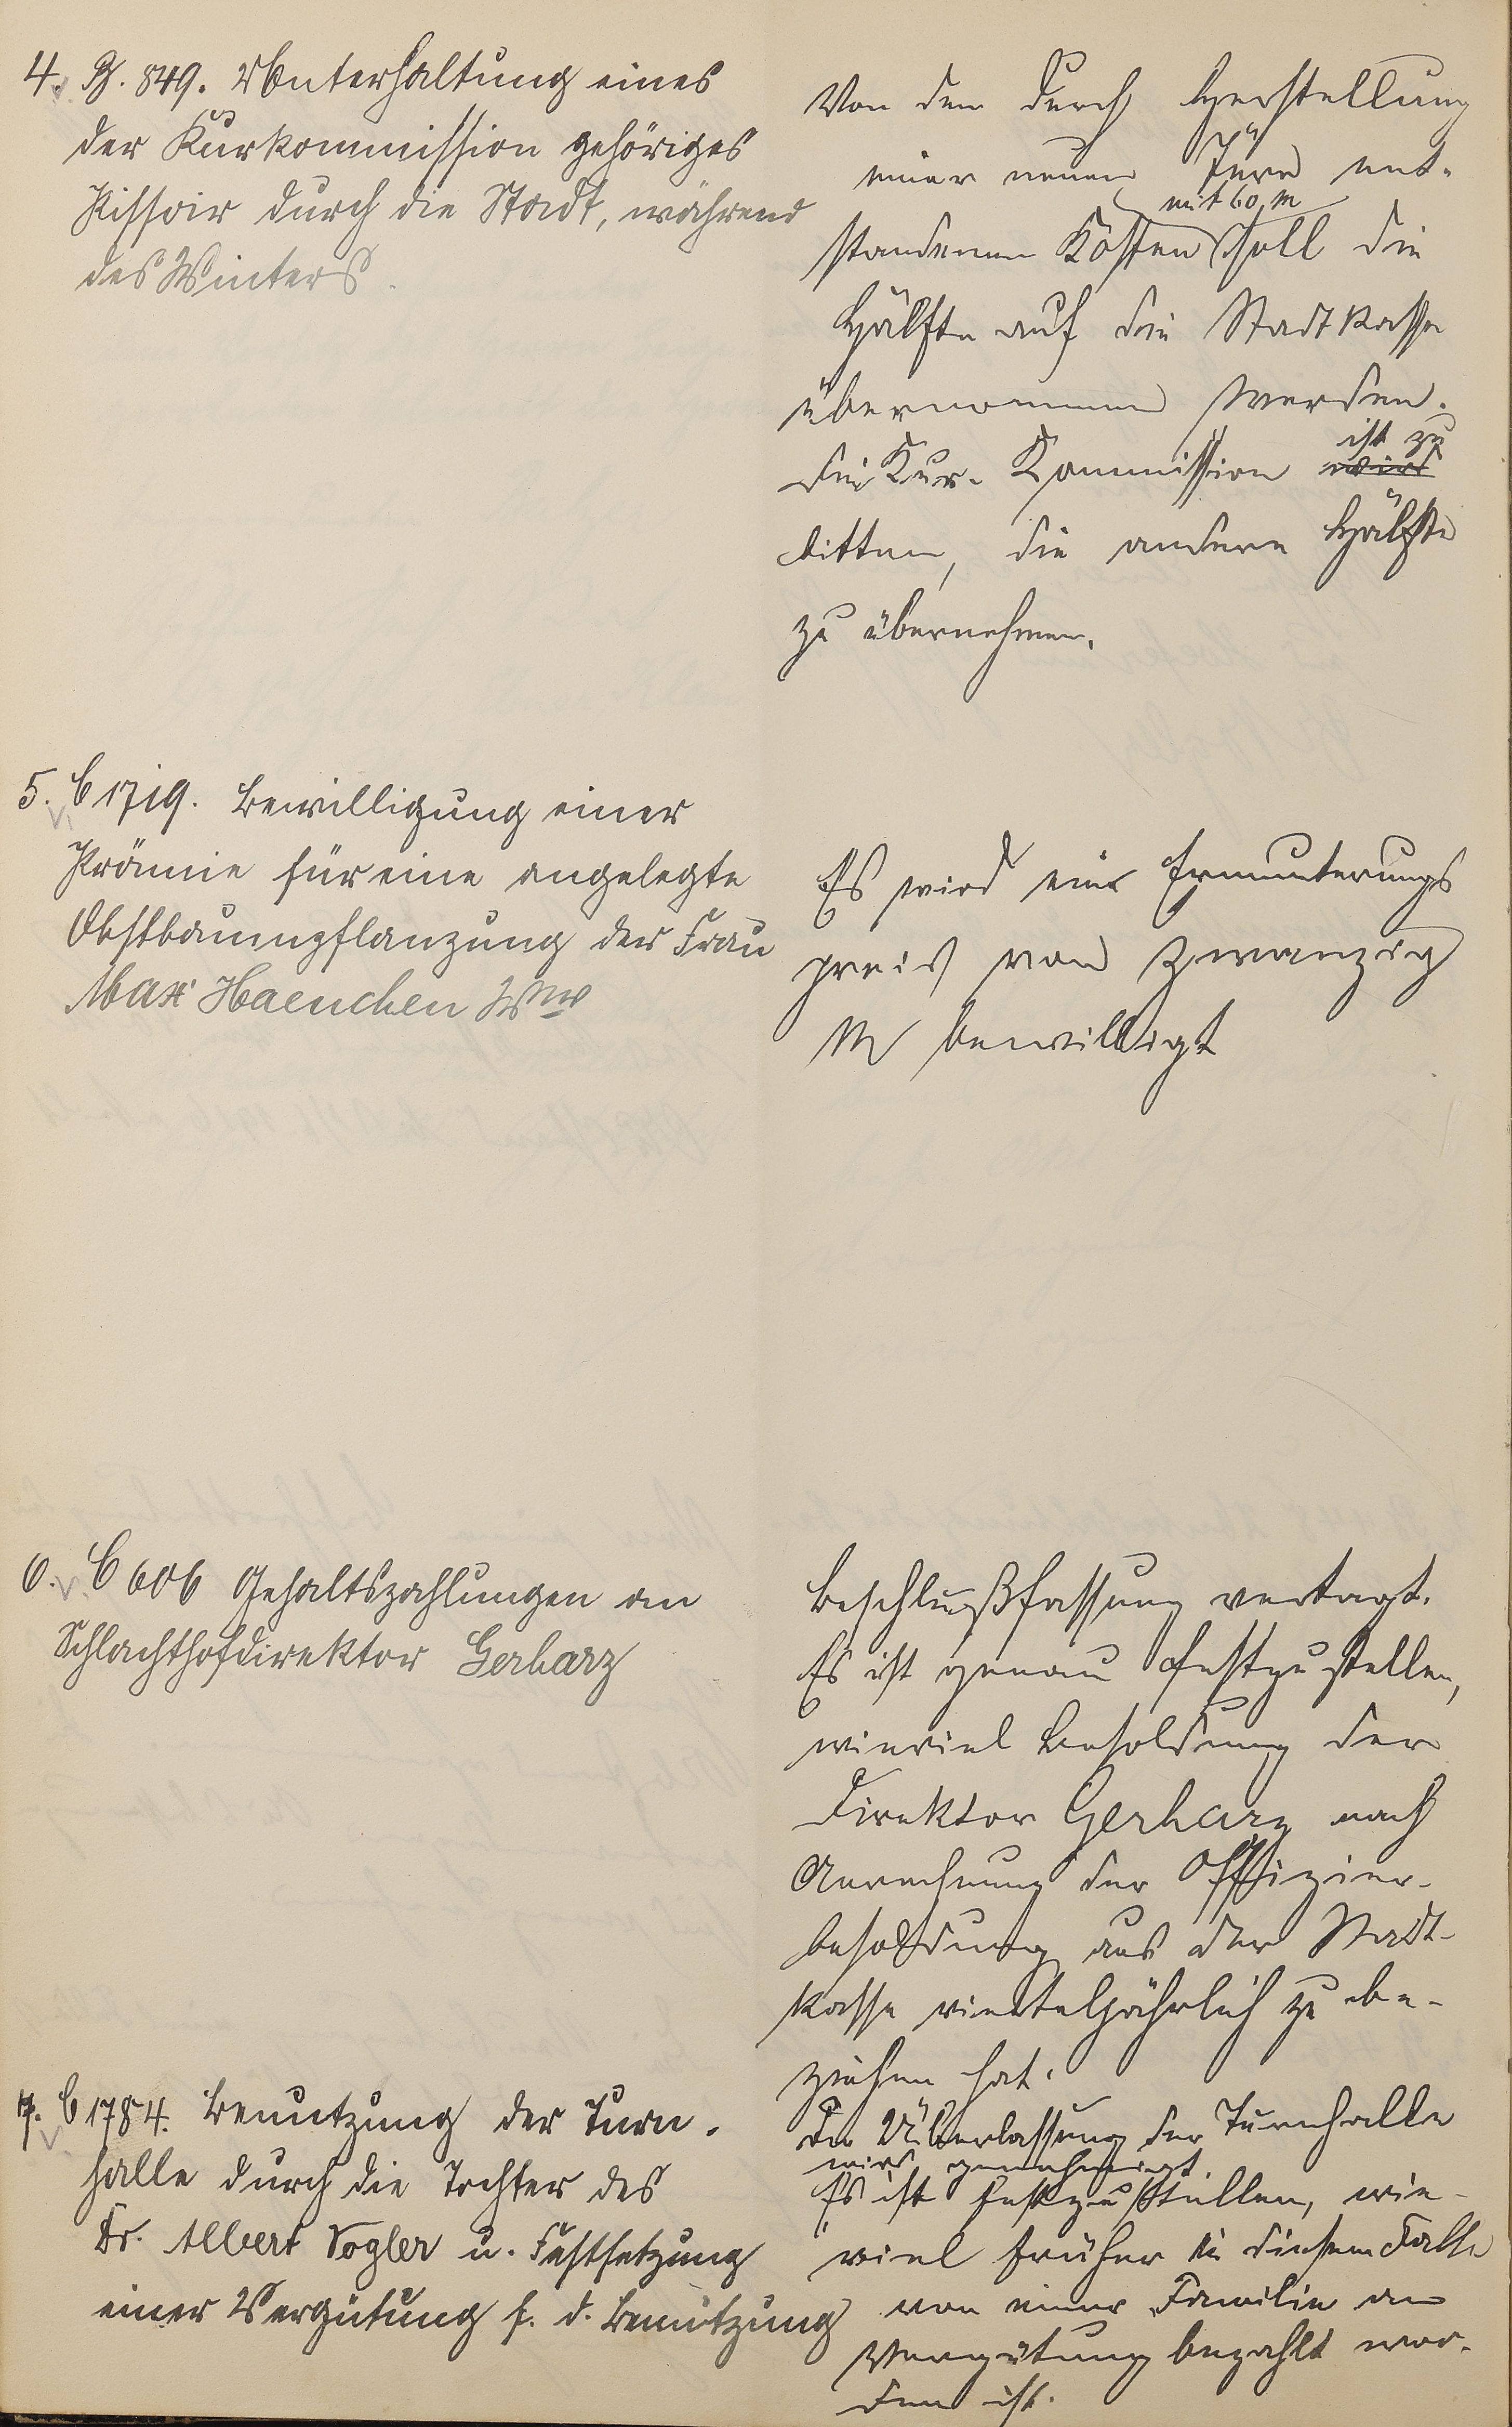 4. B. 849. Unterhaltung eines
der Kurkommission gehöriges
Pissoir durch die Stadt, während
des Winters.
Von den durch Herstellung
einer neuen Türe ent-
mit 60 M
standenen Kosten soll die
Hälfte auf die Stadtkasse
übernommen werden.
ist zu
Die Kur-Kommission wird
bitten, die andere Hälfte
zu übernehmen.
5. C 1719. Bewilligung einer
Prämie für eine angelegte
Obstbaumpflanzung der Frau
Max Haenchen Ww
Es wird ein Ermunterungs
preis von zwanzig
M bewilligt
6. C 606 Gehaltszahlungen an
Schlachthofdirektor Gerharz
Beschlußfassung vertagt.
Es ist genau festzustellen,
wieviel Besoldung der
Direktor Gerharz nach
Anrechnung der Offizier-
besoldung aus der Stadt-
kasse vierteljährlich zu be-
ziehen hat.
7. C 1784. Benutzung der Turn-
halle durch die Tochter des
Dr. Albert Vogler u. Festsetzung
einer Vergütung f. d. Benutzung
Die Überlassung der Turnhalle
wird genehmigt.
Es ist festzustellen, wie-
viel früher in diesem Falle
von einer Familie an
Vergütung bezahlt wor-
den ist.